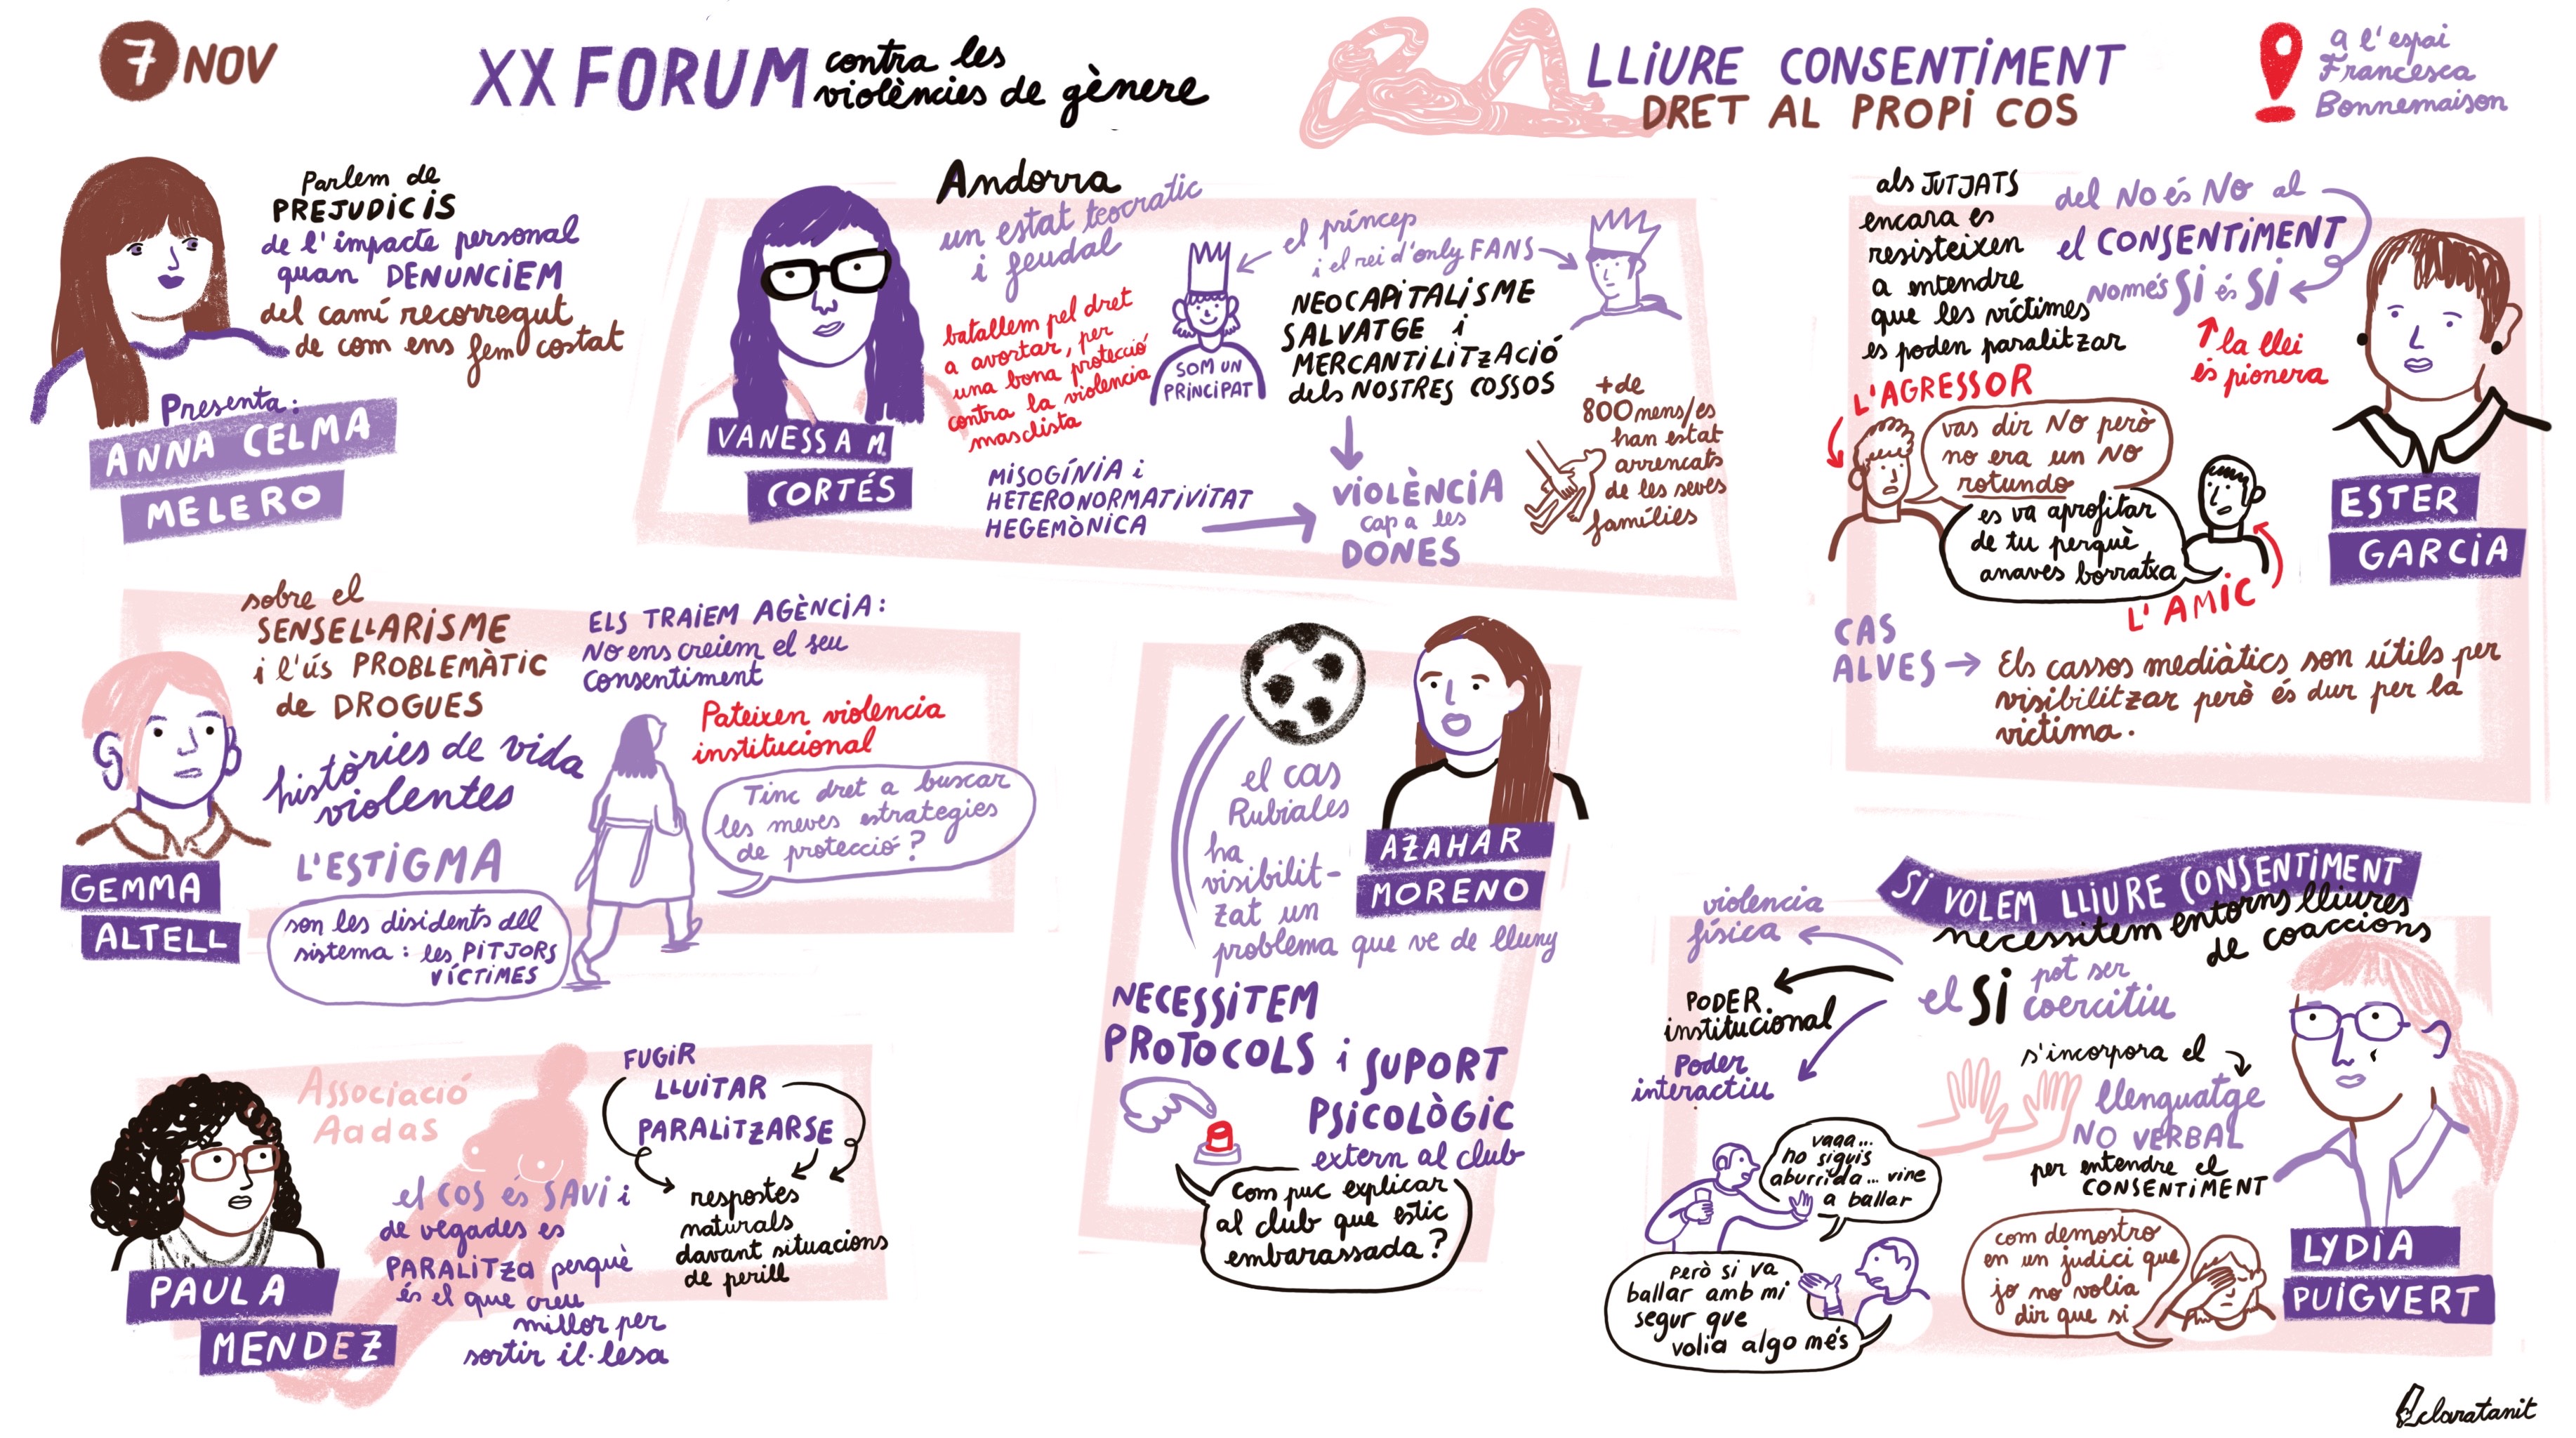 7 NOV
XX FORUM contra les
violències de gènere
LLIURE CONSENTIMENT
DRET AL PROPI COS
a l'espai
Francesca
Bonnemaison
Parlem de
PREJUDICIS
de l'impacte personal
quan DENUNCIEM
del camí recorregut
de com ens fem costat
Presenta:
ANNA CELMA
MELERO
Andorra
un estat teocratic
i feudal
el príncep
i el rei d'only FANS
batallem pel dret
a avortar, per
una bona protecció
contra la violencia
masclista
SOM UN
PRINCIPAT
NEOCAPITALISME
SALVATGE i
MERCANTILITZACIÓ
dels NOSTRES COSSOS
+ de
800 mens/es
han estat
arrencats
de les seves
famílies
VANESSA M.
CORTÉS
MISOGÍNIA i
HETERONORMATIVITAT
HEGEMÒNICA
VIOLÈNCIA
cap a les
DONES
als JUTJATS
encara es
resisteixen
a entendre
que les víctimes
es poden paralitzar
del NO és NO al
el CONSENTIMENT
Només SI és SI
la llei
és pionera
L'AGRESSOR
vas dir NO però
no era un NO
rotundo
es va aprofitar
de tu perquè
anaves borratxa
L'AMIC
ESTER
GARCIA
CAS
ALVES
Els cassos mediàtics son útils per
visibilitzar però és dur per la
victima.
sobre el
SENSELLARISME
i l'ús PROBLEMÀTIC
de DROGUES
històries de vida
violentes
L'ESTIGMA
son les disidents dell
sistema: les PITJORS
VÍCTIMES
GEMMA
ALTELL
ELS TRAIEM AGÈNCIA:
No ens creiem el seu
consentiment
Pateixen violencia
institucional
Tinc dret a buscar
les meves estrategies
de protecció?
el cas
Rubiales
ha
visibilit-
zat un
problema que ve de lluny
AZAHAR
MORENO
NECESSITEM
PROTOCOLS i SUPORT
PSICOLÒGIC
extern al club
Com puc explicar
al club que estic
embarassada?
Associació
Aadas
FUGIR
LLUITAR
PARALITZARSE
respostes
naturals
davant situacions
de perill
el COS és SAVI i
de vegades es
PARALITZA perquè
és el que creu
millor per
sortir il·lesa
PAULA
MÉNDEZ
SI VOLEM LLIURE CONSENTIMENT
necessitem entorns lliures
de coaccions
violencia
física
PODER
institucional
Poder
interactiu
el SI pot ser
coercitiu
s'incorpora el
llenguatge
NO VERBAL
per entendre el
CONSENTIMENT
vaga...
no siguis
aburrida... vine
a ballar
però si va
ballar amb mi
segur que
volia algo més
com demostro
en un judici que
jo no volia
dir que si
LYDIA
PUIGVERT
claratanit